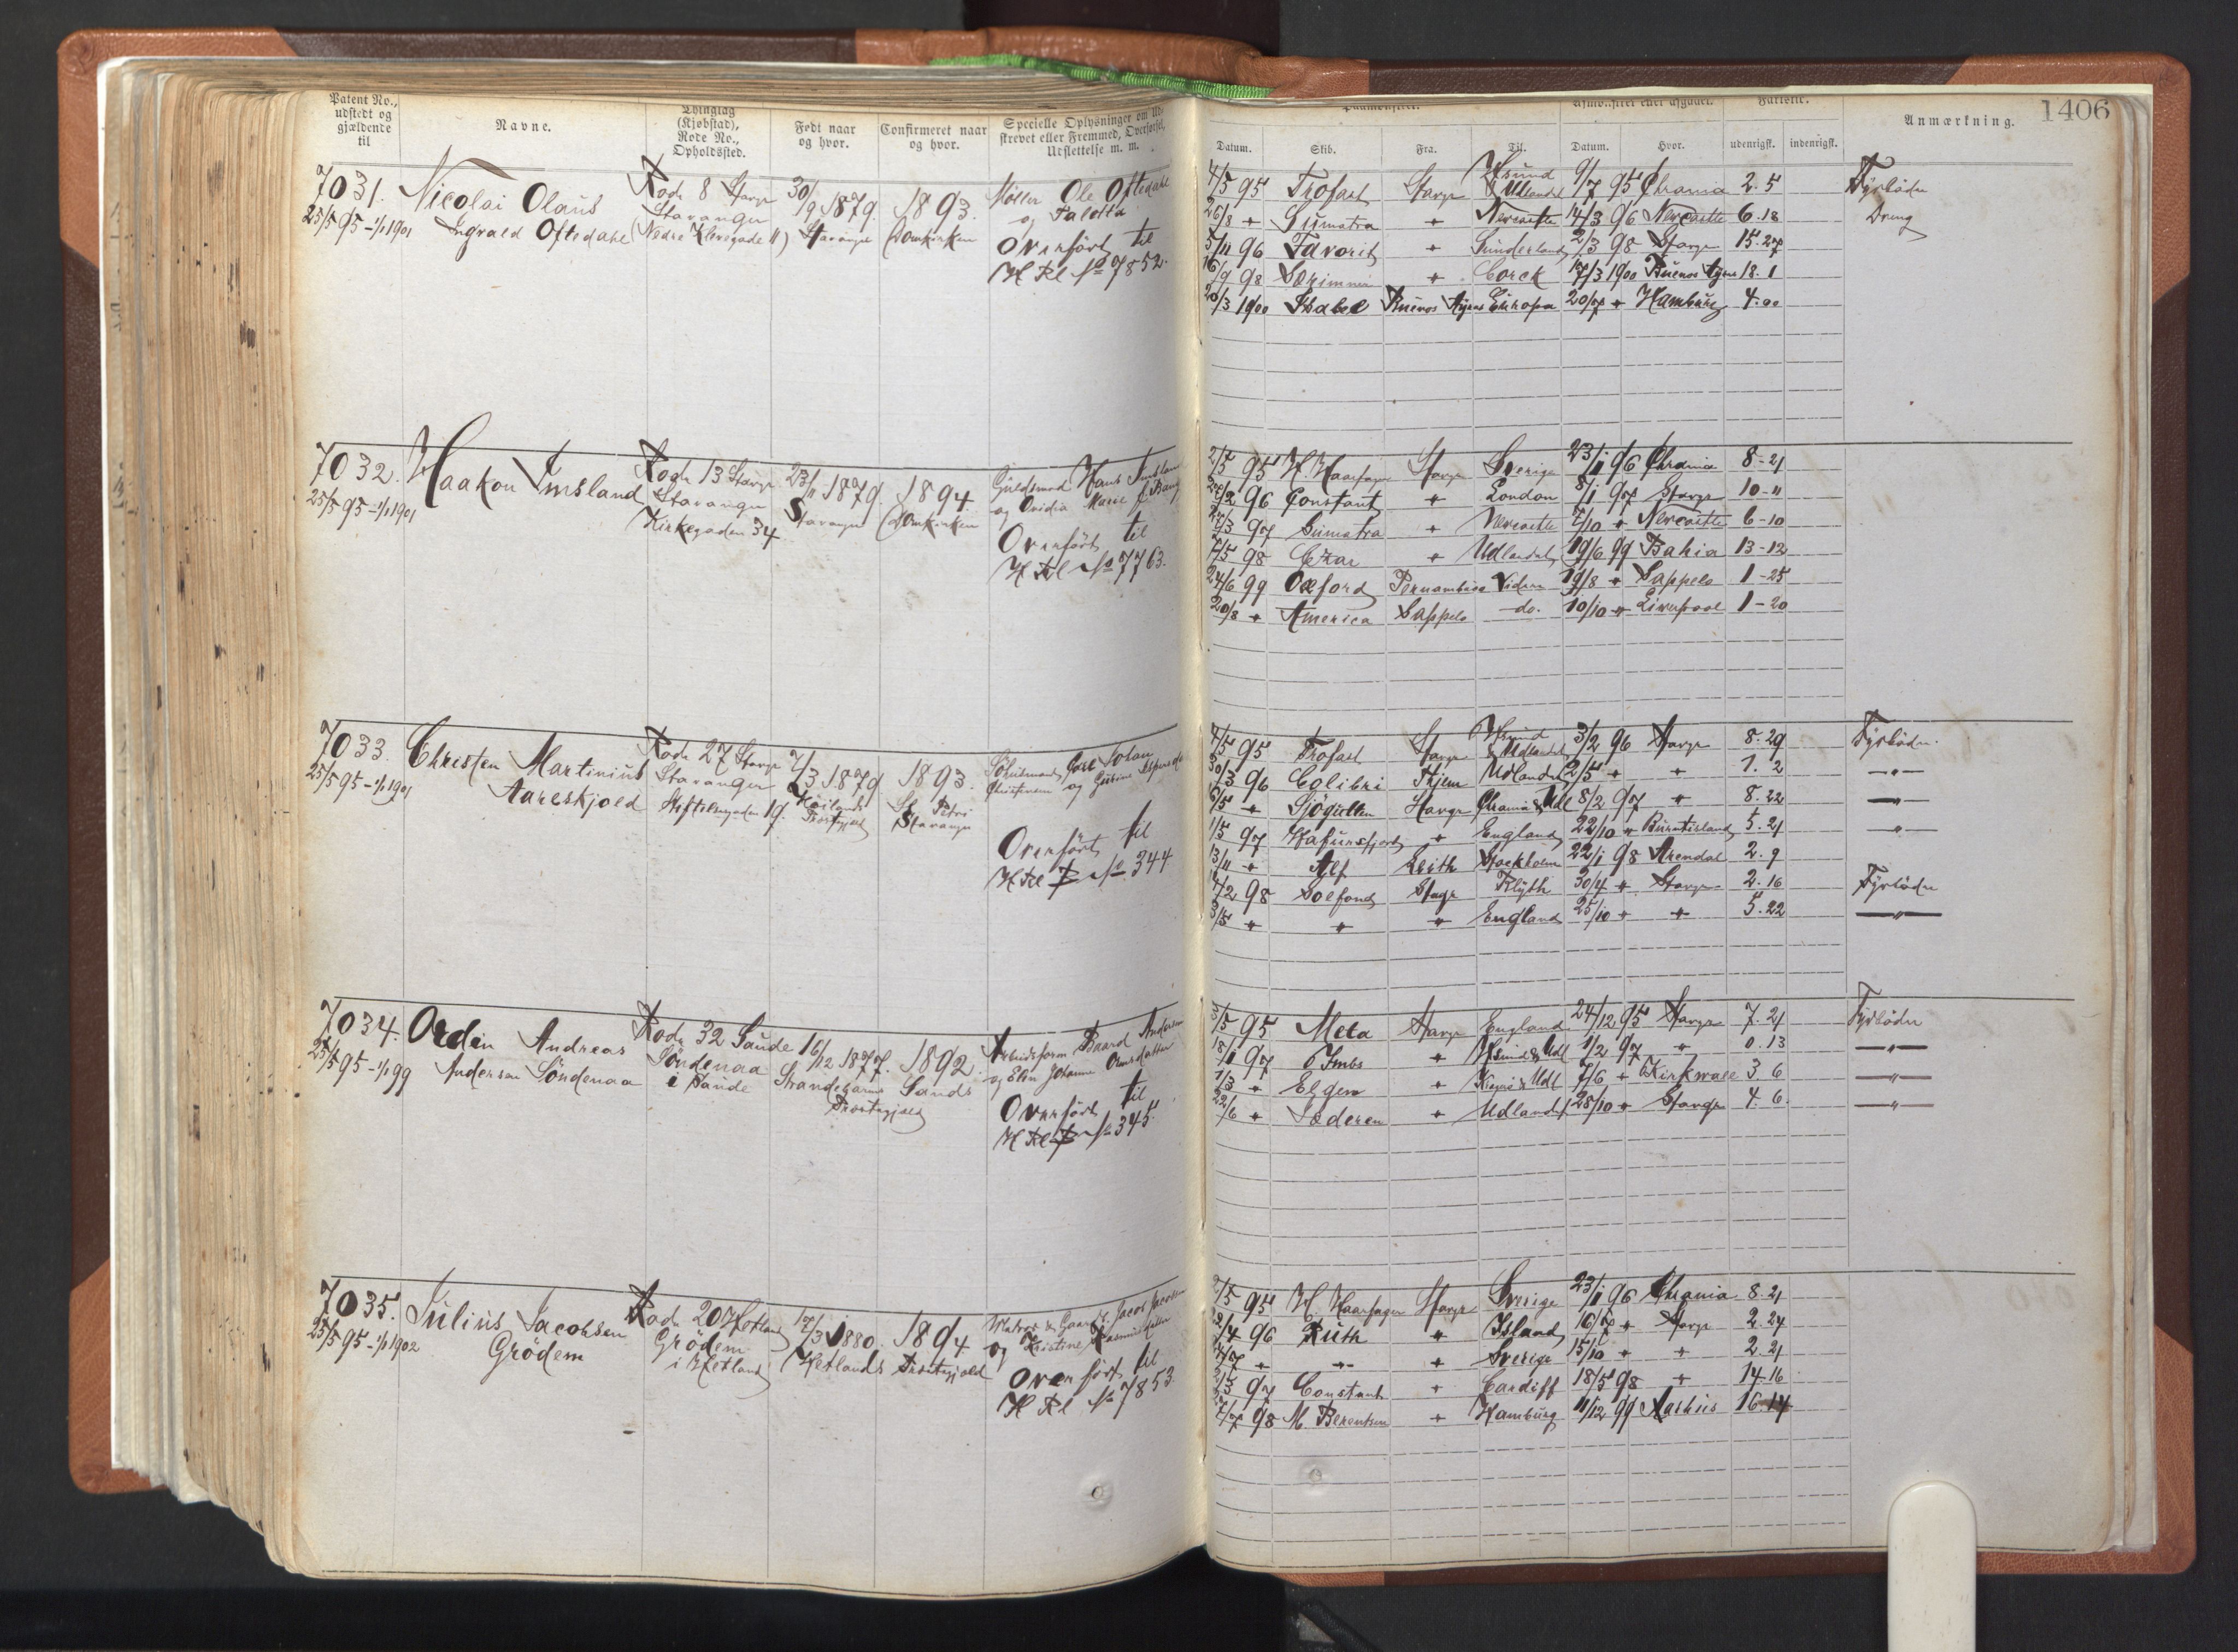 Patent No., udstedt og gjældende til
Navne.
Thinglag (Kjøbstad), Rode No., Opholdssted.
Født naar og hvor.
Confirmeret naar og hvor.
Specielle Oplysninger om
strevet eller Fremmed, Overførsel,
Udslettelse m. m.
Datum.
Skib.
Fra.
Til.
Datum.
Hvor.
udenrigsk.
indenrigsk.
Anmærkning.
1406
7031. Nicolai Olaus Rode 8 Stavgr 30/9 1879. 1893. Möller Ole Oftedahl
25/5 95 - 1/1 1901 Ingvald Oftedahl Stavanger (Nedre Klevegade 11) Stavanger Domkirken og
Overført til
H Rl No 7852.
4/5 95 Trofast Stavgr Udlandet 9/7 95 Chrania 2.5 Fyrböder
26/8 " Sumatra " Newcastle 14/3 96 Newcastle 6.18 Dreng
5/11 96 Favorit " Sunderland 2/3 98 Stavgr 15.27
16/9 98 " Corck 17/3 1900 Buenos Ayres 18.1
20/3 1900 Buenos Ayres Europa 20/7 " Hamburg 4.00
7032. Haakon Imsland Rode 13 Stavgr 23/11 1879. 1894. Guldsmed Hans Imsland
25/5 95 - 1/1 1901 Stavanger Stavanger Domkirken og
Kirkegaden 34
Overført til
H Rl No 7763.
2/5 95 H. Haarfager Stavgr Sverige 23/1 96 Chrania 8-21
96 Constant " London 8/1 97 Stavgr 10-11
97 Sumatra " Newcastle 7/10 " Newcastle 6-10
7/5 98 Czar " Udlandet 19/6 99 Bahia 13-12
24/6 99 Oxford Pernambuco Videre 19/8 " Sappelo 1-25
20/8 " America Sappelo do. 10/10 " Liverpool 1-20
7033. Christen Martinius Rode 27 Stavgr 7/3 1879 1893.
25/5 95 - 1/1 1901 Aareskjold Stavanger 19. Høilands Præstegjeld St Petri Stavanger
Overført til
H Rl No 344
4/5 95 Trofast Stavgr & Udlandet 3/2 96 Stavgr 8.29 Fyrböder.
30/3 96 Colibri Udlandet 2/5 " " 1.2 — " —
6/5 " Sjögutten Stavgr Chrania & Udl 8/2 97 " 8.22 —
1/5 97 Hafursfjord " England 22/10 " Burntisland 5.21 — " —
13/11 " Alf Leith Stockholm 22/1 98 Arendal 2.9
98 Solfond Stavgr Blyth 30/4 " Stavgr 2.16 Fyrböder
3/5 " " " England 25/10 " " 5.22 — " —
7034. Andreas Rode 32 Saude 16/12 1877. 1892. Arbeidsform Baard Andersen
25/5 95 - 1/1 99 Andersen Söndenaa Söndenaa i Saude Strandebarms Præstegjeld Sands og Elin Johanne
Overført til
H Rl No 345.
3/5 95 Meta Stavgr England 24/12 95 Stavgr 7.21 Fyrböder
18/1 97 " & Udl 1/2 97 " 0.13 — " —
1/3 " Elgen " & Udl 7/6 " Kirkwall 3.6 — " —
22/6 " Jæderen " Udlandet 28/10 " Stavgr 4.6 — " —
7035. Julius Jacobsen Rode 20 Hetland 17/3 1880. 1894 Jacob Jacobsen
25/5 95 - 1/1 1902 Grödem Grödem i Hetland Hetlands Præstegjeld og Kristine
Overført til
H Rl No 7853.
2/5 95 H. Haarfager Stavgr Sverige 23/1 96 Chrania 8.21
96 Ruth " Island 16/7 " Stavgr 2.24
" " " Sverige 15/10 " " 2.21
97 Constant " Cardiff 18/5 98 " 14-16
98 M. Berentsen " Hamburg 11/12 99 Aarhus 16.14